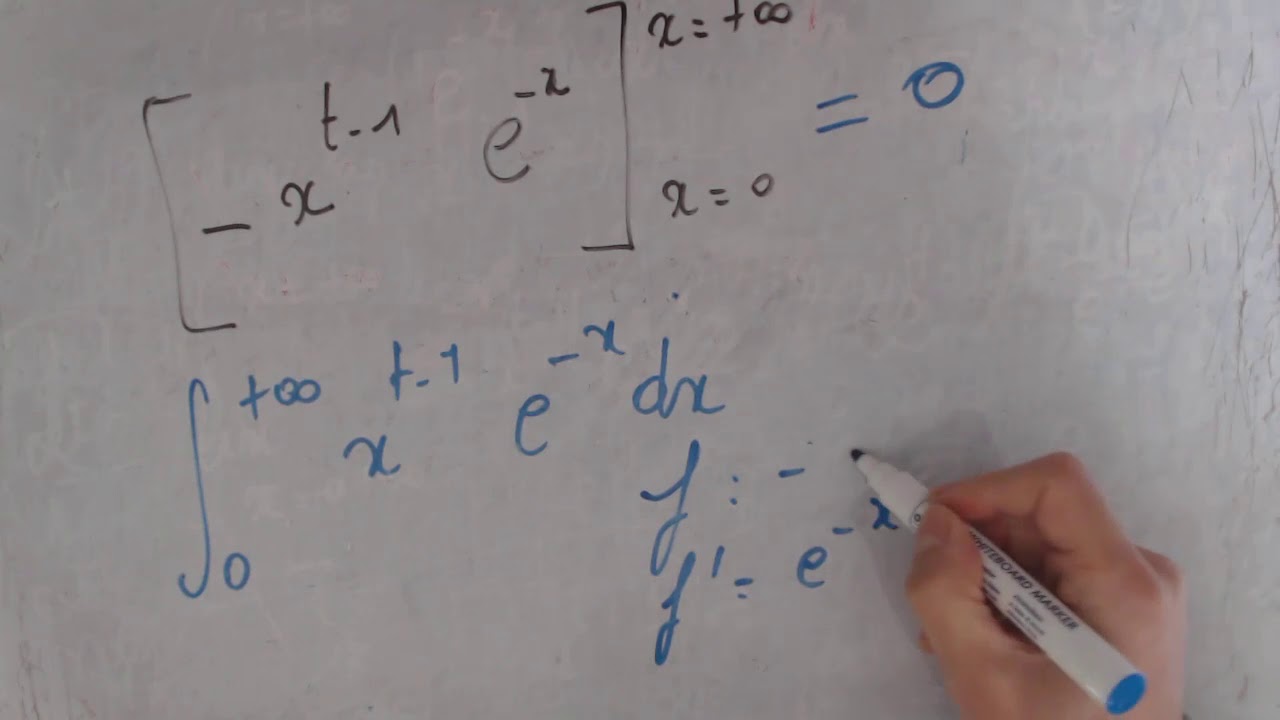 [ - x^{t-1} e^{-x} ]_{x=0}^{x=+∞} = 0
∫_0^{+∞} x^{t-1} e^{-x} dx
f : -
f' = e^{-x}
WHITEBOARD MARKER